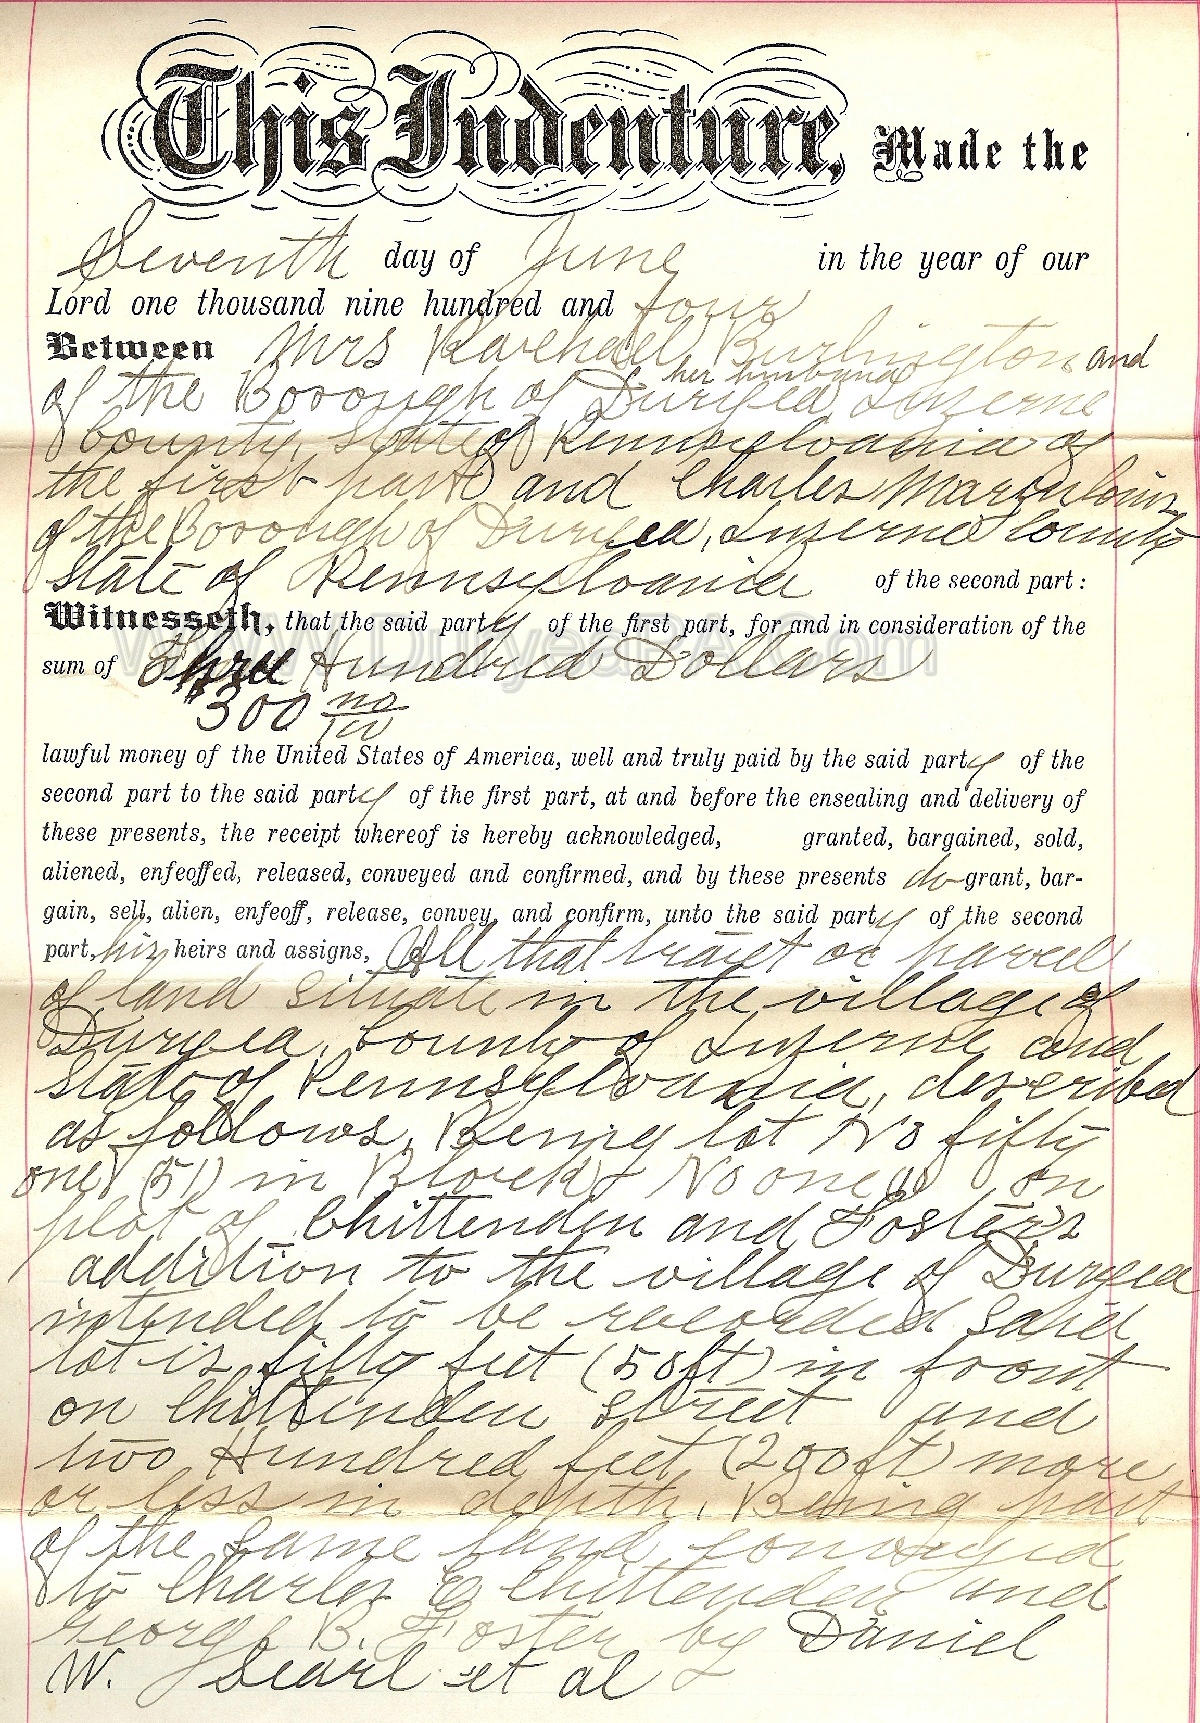 This Indenture, Made the
Seventh day of June in the year of our
Lord one thousand nine hundred and four
Between Mrs Rachael Burlington and
her husband
of the Borough of Duryea Luzerne
County, State of Pennsylvania of
the first part and Charles
of the Borough of Duryea, Luzerne County
State of Pennsylvania of the second part:
Witnesseth, that the said party of the first part, for and in consideration of the
www.DuryeaPA.com
sum of Three Hundred Dollars
$300 no/100
lawful money of the United States of America, well and truly paid by the said party of the
second part to the said party of the first part, at and before the ensealing and delivery of
these presents, the receipt whereof is hereby acknowledged, granted, bargained, sold,
aliened, enfeoffed, released, conveyed and confirmed, and by these presents do grant, bar-
gain, sell, alien, enfeoff, release, convey and confirm, unto the said party of the second
part, his heirs and assigns, All that tract or parcel
of land situate in the village of
Duryea, County of Luzerne and
State of Pennsylvania, described
as follows, Being lot No fifty
one (51) in Block No one on
plot of Chittenden and Foster's
addition to the village of Duryea
intended to be recorded said
lot is fifty feet (50ft) in front
on Chittenden Street and
two Hundred feet (200ft) more
or less in depth, Being part
of the same land conveyed
to Charles E Chittenden and
George B. Foster by Daniel
W. Searl et al